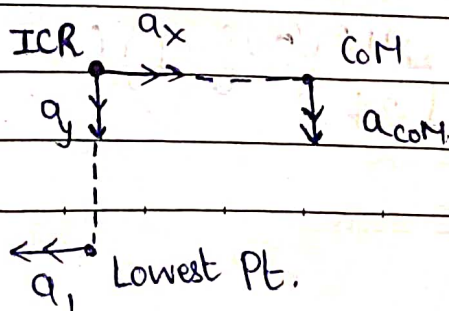 ICR aₓ CoM
a_y a_CoM
a₁ Lowest Pt.